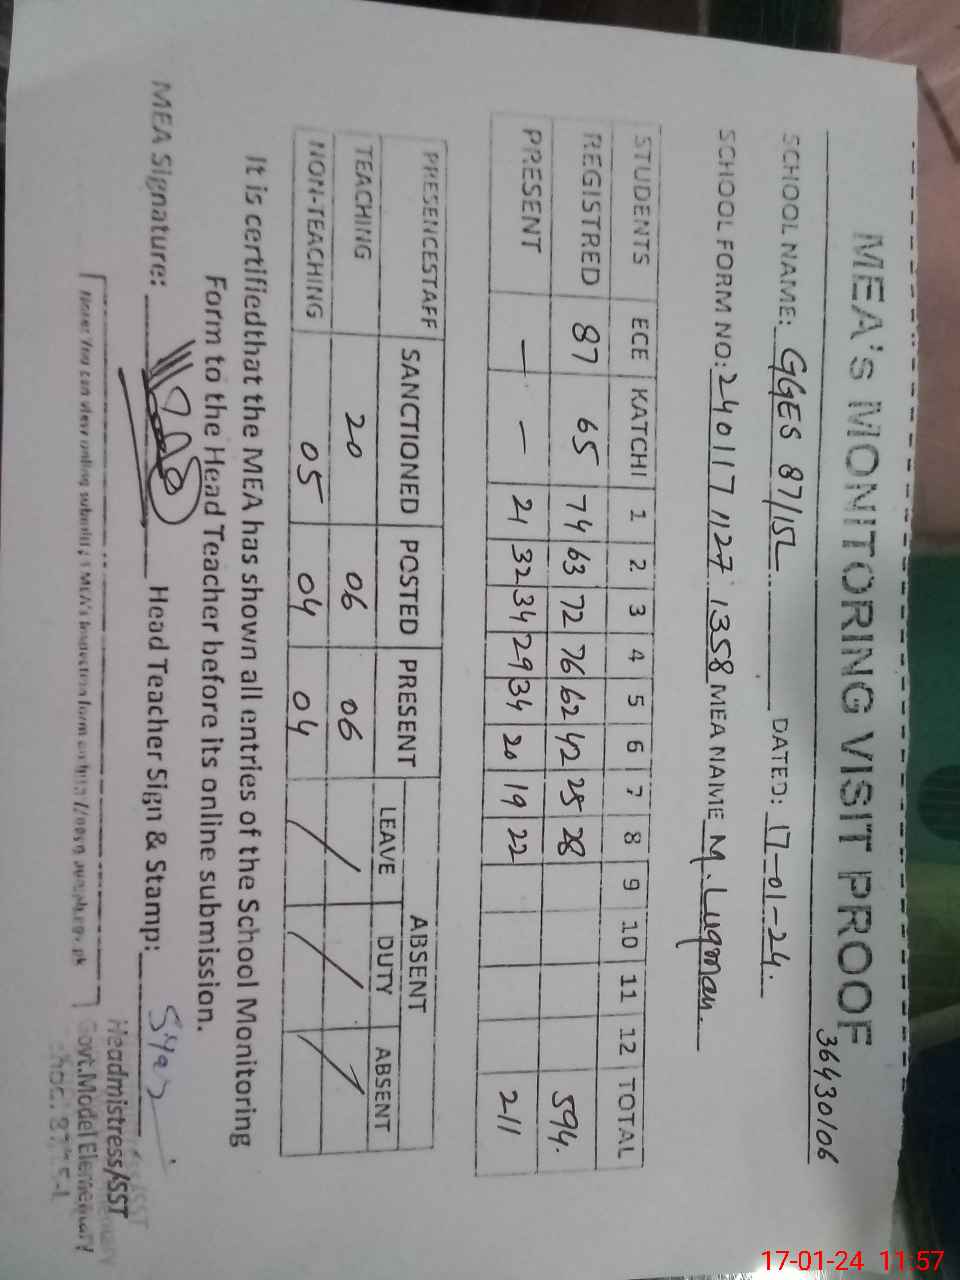 MEA's MONITORING VISIT PROOF
36430106
SCHOOL NAME: GGES 87/15L DATED: 17-01-24
SCHOOL FORM NO: 240117 1127 1358 MEA NAME M. Luqman.
STUDENTS ECE KATCHI 1 2 3 4 5 6 7 8 9 10 11 12 TOTAL
REGISTRED 87 65 74 63 72 76 62 42 25 28 594.
PRESENT — — 21 32 34 29 34 20 19 22 211
PRESENCESTAFF SANCTIONED POSTED PRESENT ABSENT
LEAVE DUTY ABSENT
TEACHING 20 06 06
NON-TEACHING 05 04 04
It is certifiedthat the MEA has shown all entries of the School Monitoring
Form to the Head Teacher before its online submission.
MEA Signature: Head Teacher Sign & Stamp:
Headmistress/SST
Govt.Model Elementary
Note: You can view online MEA's
17-01-24 11:57